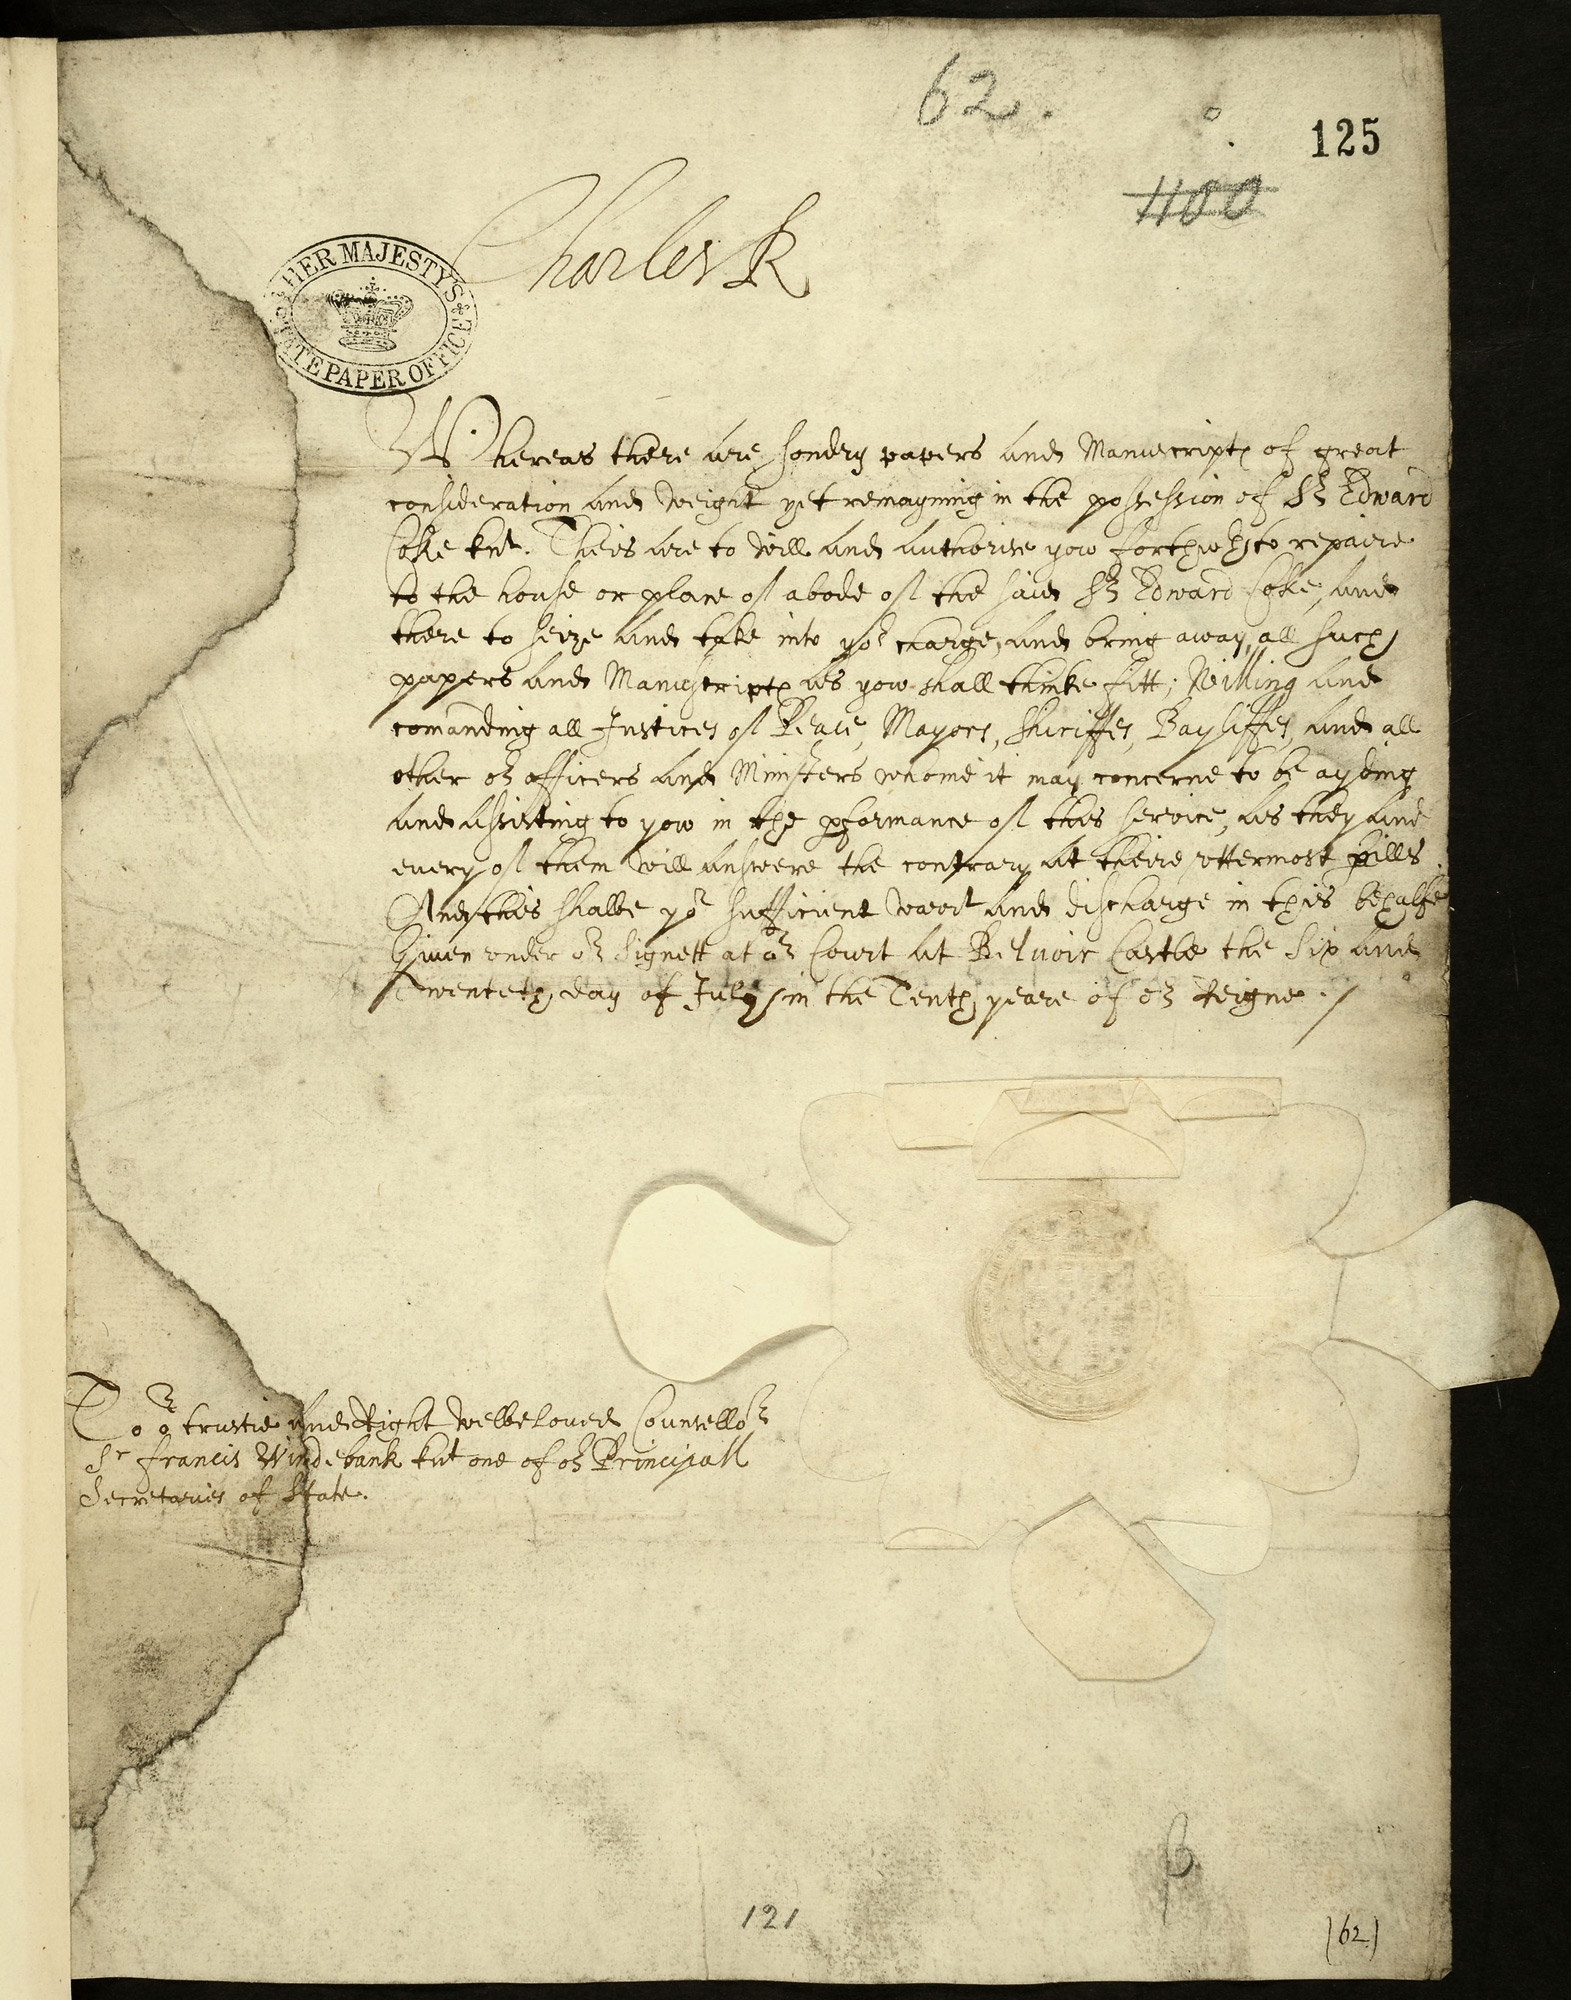 62.
125
1100
Charles R
HER MAJESTY'S STATE PAPER OFFICE
Whereas there are sondry papers and Manuscripts of great
consideration and weight yet remayning in the possession of Sr Edward
Coke knt. Theis are to will and authorise yow forthwth to repaire
to the house or place of abode of the said Sr Edward Coke, and
there to seize and take into yor charge, and bring away, all such
papers and Manuscripts as yow shall thinke fitt; Willing and
comanding all Justices of Peace, Mayors, Shiriffes, Bayliffes, and all
other or officers and Ministers whome it may concerne to be ayding
and assisting to yow in the pformance of this service, as they and
every of them will answere the contrary at theire vttermost pills.
And this shalbe yor sufficient warrt and discharge in this behalfe.
Given vnder or Signett at or Court at Beluoir Castle the Six and
Twenteth day of July in the Tenth yeare of or Reigne ./
To or trustie and Right welbeloued Counsellor
Sr Francis Windebank knt one of or Principall
Secretaries of State.
121
(62)